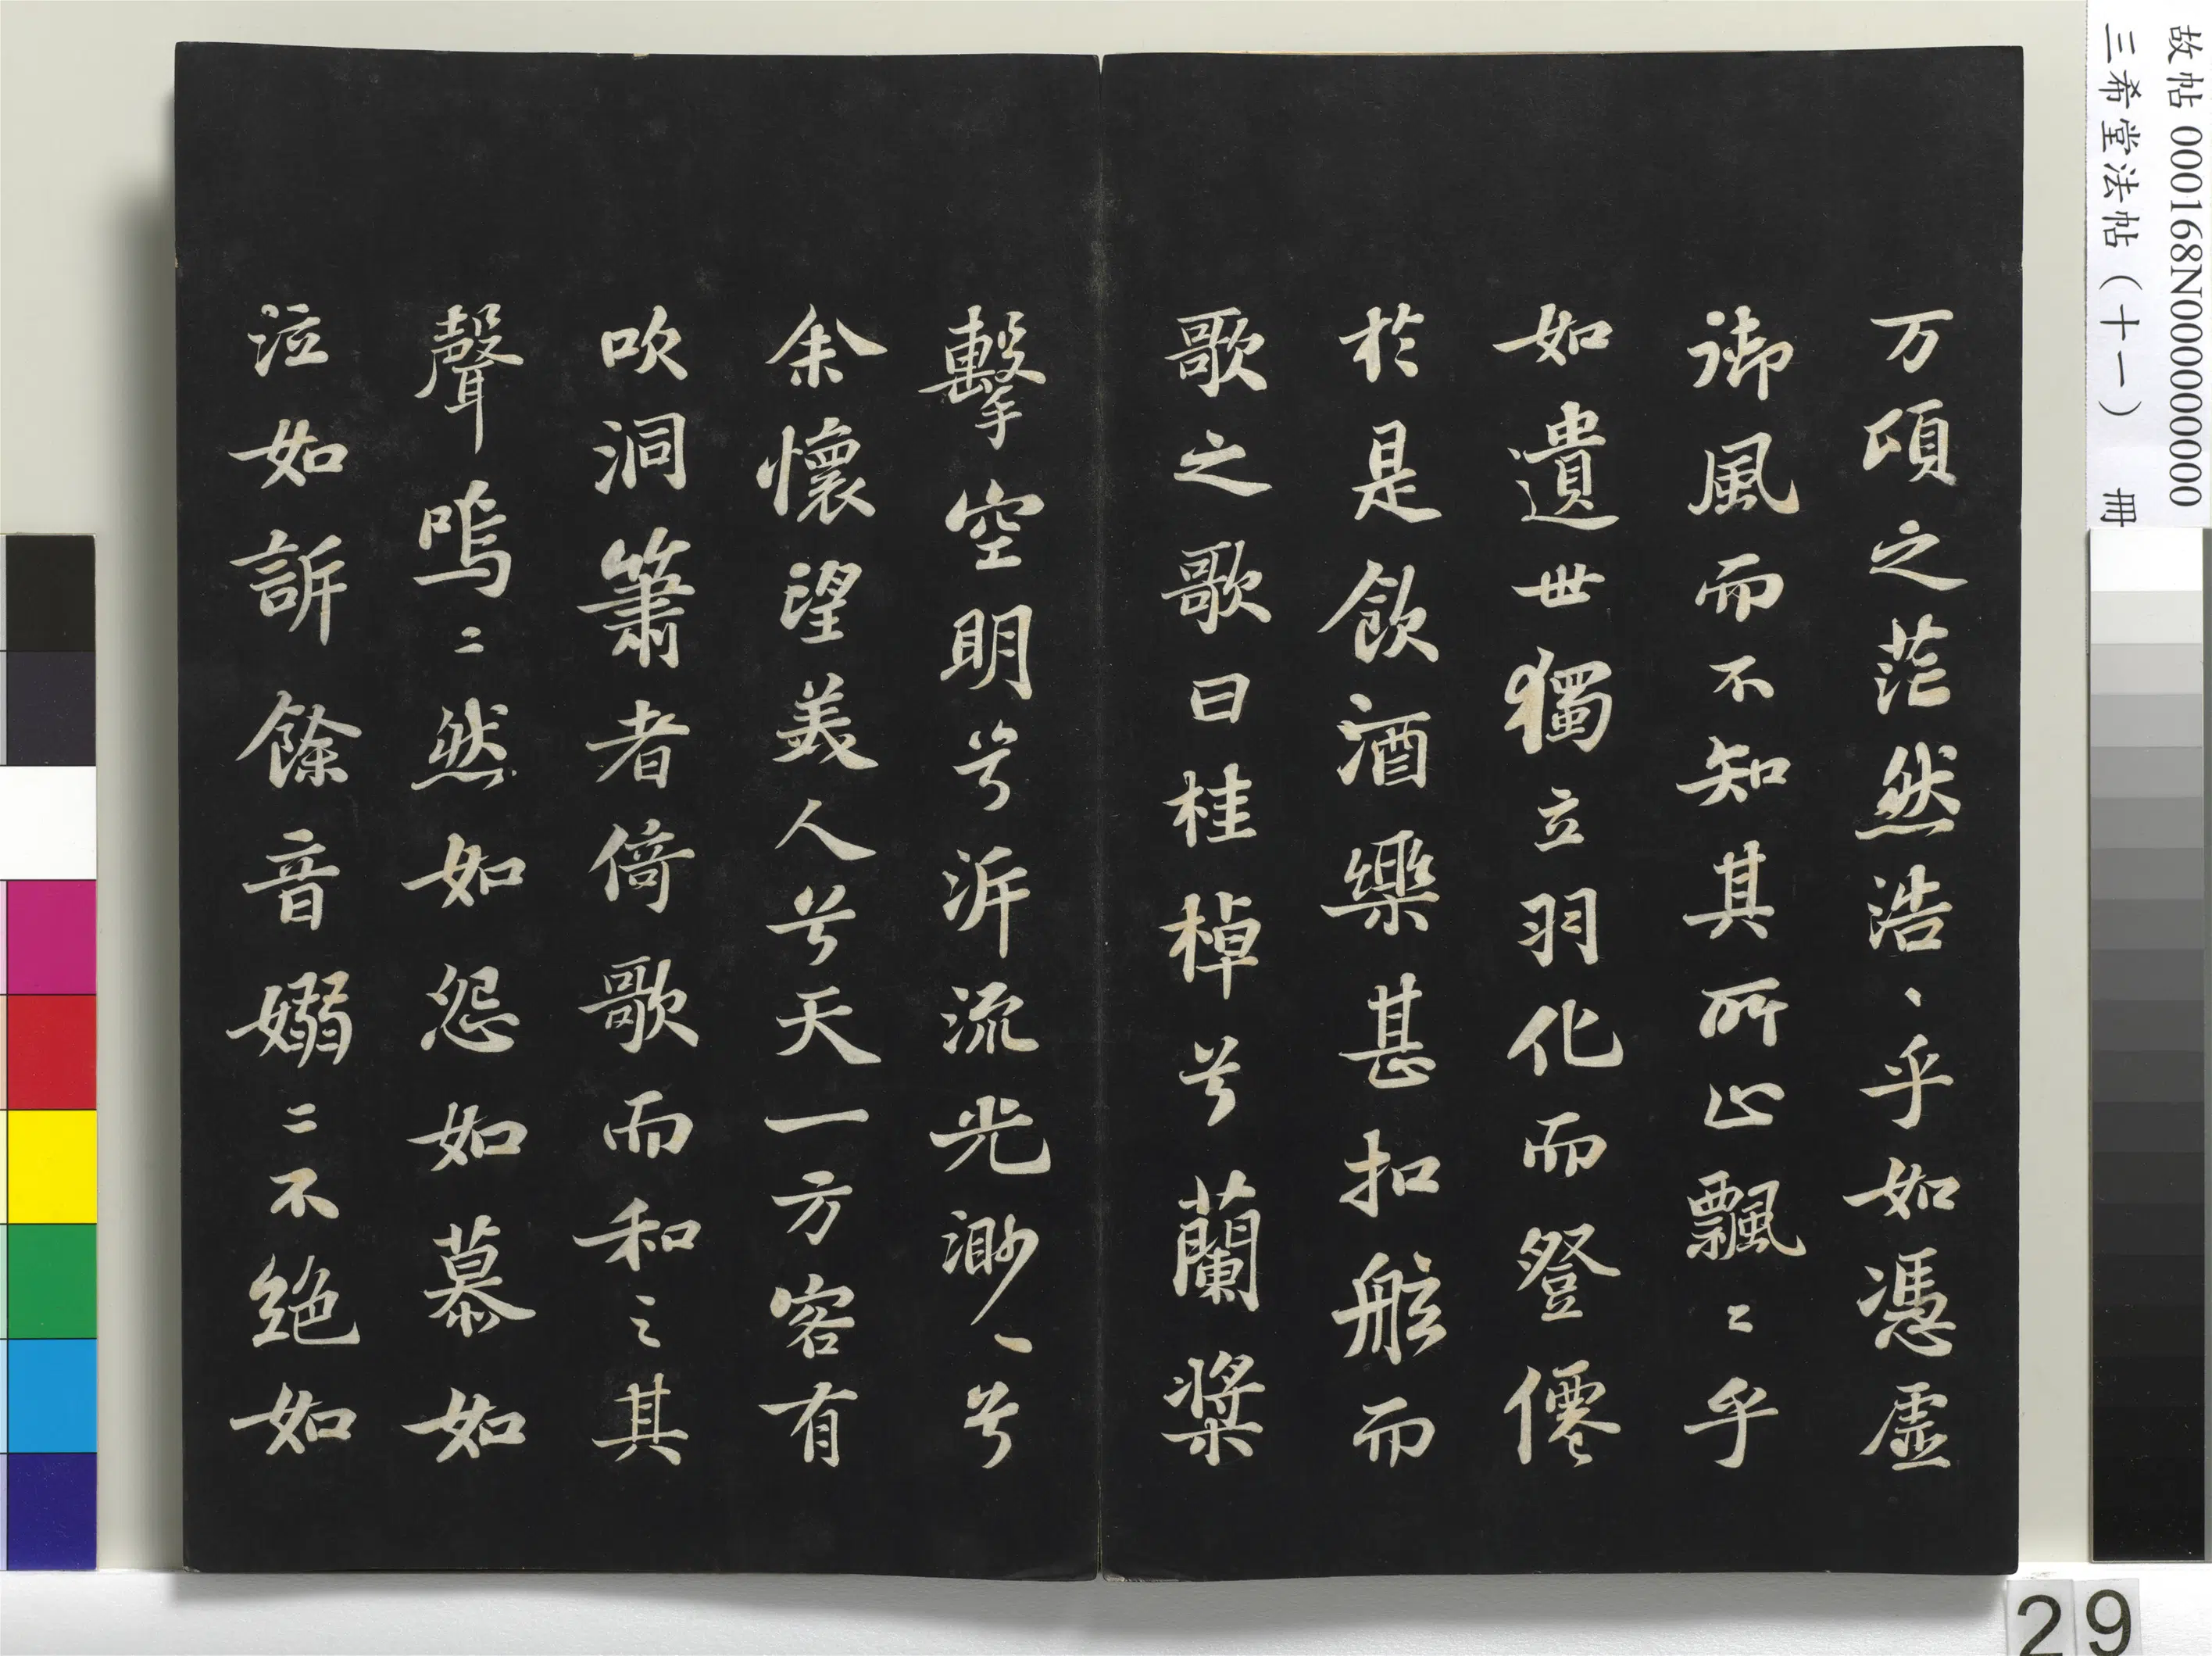 故帖 000168N000000000
三希堂法帖（十一） 冊
万頃之茫然浩、乎如馮虛
御風而不知其所止飄〻乎
如遺世獨立羽化而登僊
於是飲酒樂甚扣舷而
歌之歌曰桂棹兮蘭槳
擊空明兮泝流光渺〻兮
余懷望美人兮天一方客有
吹洞簫者倚歌而和之其
聲嗚〻然如怨如慕如
泣如訴餘音嫋〻不絕如
29